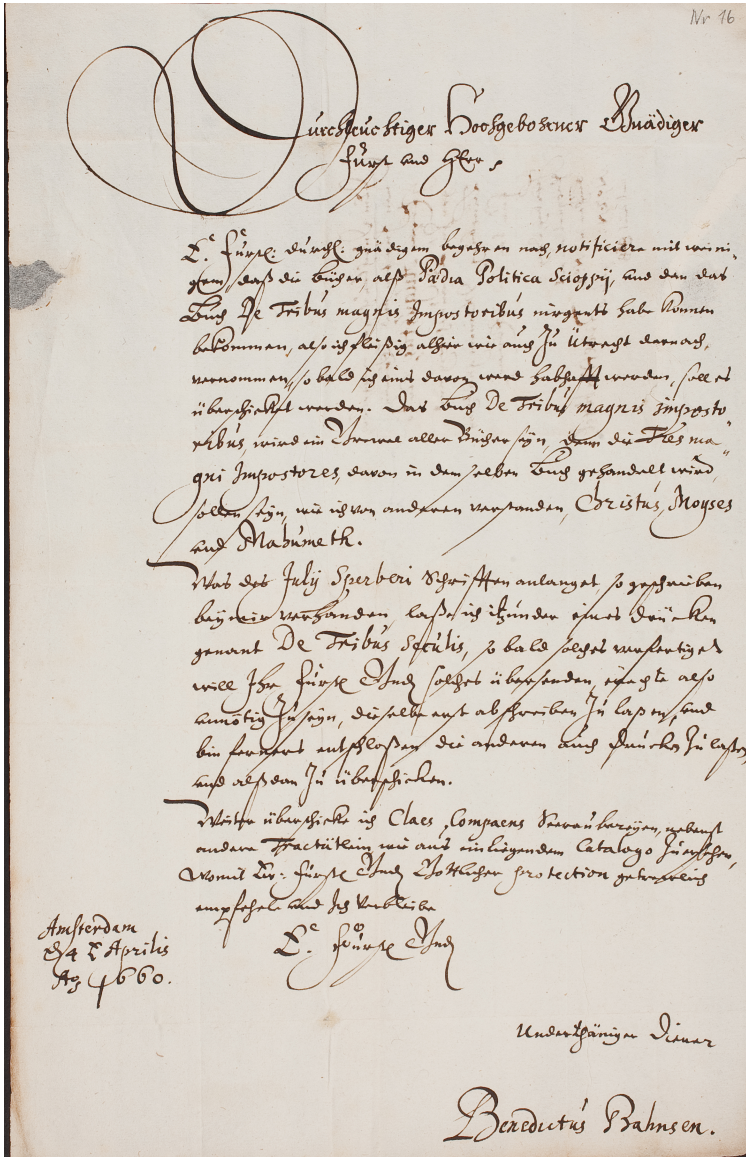 Nr 16
Durchleuchtiger Hochgebohrner Gnädiger
Fürst und HErr,
Ee Fürstl: durchl: gnädigem begehren nach, notificiere mit weini-
gem, daß die bücher, alß Pædia Politica Scioppij, und dan das
Buch De Tribus magnis Impostoribus nirgents habe konnen
bekommen, also ich fleißig alhier wie auch zu Utrecht darnach,
vernommen, so bald ich eins davon werd habhafft werden, soll es
überschicket werden. Das buch De Tribus magnis imposto
ribus, wird ein Grewel aller Bücher sijn, denn die Tres ma-
gni Impostores, davon in dem selben buch gehandelt wird,
sollen seyn, wie ich von anderen verstanden, Christus, Moyses
und Mahumeth.
Was des Julij Sperberi Schrifften anlanget, so geschrieben
bey mir verhanden, laße ich itzunder eines drücken
genant De Tribus Seculis, so bald solches verfertiget
will Ihr Fürstl Gnd solches übersenden, achte also
unnötig zu seyn, dieselbe erst abschreiben zu laßen, und
bin ferners entschloßen die anderen auch drucken zu laßen,
und alßdan zu überschicken.
Weiter überschicke ich Claes Compaens Seerauberejen, nebenst
andere Tractätlein, wie aus einligendem Catalogo zu ersehen,
Womit Ew: Fürstl Gnd Gottlicher protection getreulich
empfehele und Ich Verbleibe
Ee Fürstl Gnd
Amsterdam
4 Aprilis
Ao 1660.
Underthäniger Diener
Benedictus Bahnsen.